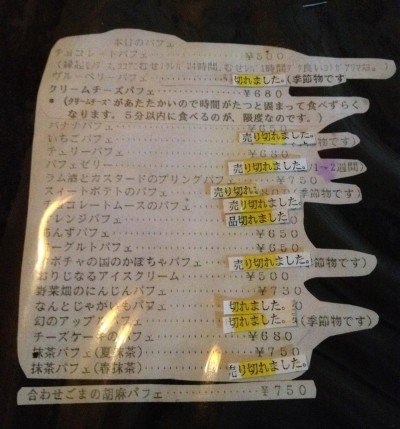 本日のパフェ
チョコレートパフェ ¥580
ブルーベリーパフェ 切れました。(季節物です
クリームチーズパフェ ¥680
* (クリームチーズがあたたかいので時間がたつと固まって食べずらく
なります。5分以内に食べるのが、限度なのです。)
バナナパフェ
いちごパフェ 売り切れました。物です)
チェリーパフェ ¥680
パフェゼリー 売り切れました。 1〜2週間)
ラム酒とカスタードのプリングパフェ ¥750
スイートポテトのパフェ 売り切れ (季節物です)
チョコレートムースのパフェ 売り切れました。
オレンジパフェ 品切れました。
あんずパフェ ¥650
ヨーグルトパフェ ¥650
カボチャの国のかぼちゃパフェ 売り切れました。節物です)
おりじなるアイスクリーム ¥500
野菜畑のにんじんパフェ ¥730
なんとじゃがいもパフェ 切れました。
幻のアップルパフェ 切れました。(季節物です)
チーズケーキのパフェ ¥680
抹茶パフェ(夏抹茶) ¥750
抹茶パフェ(春抹茶) 売り切れました。
合わせごまの胡麻パフェ ¥750